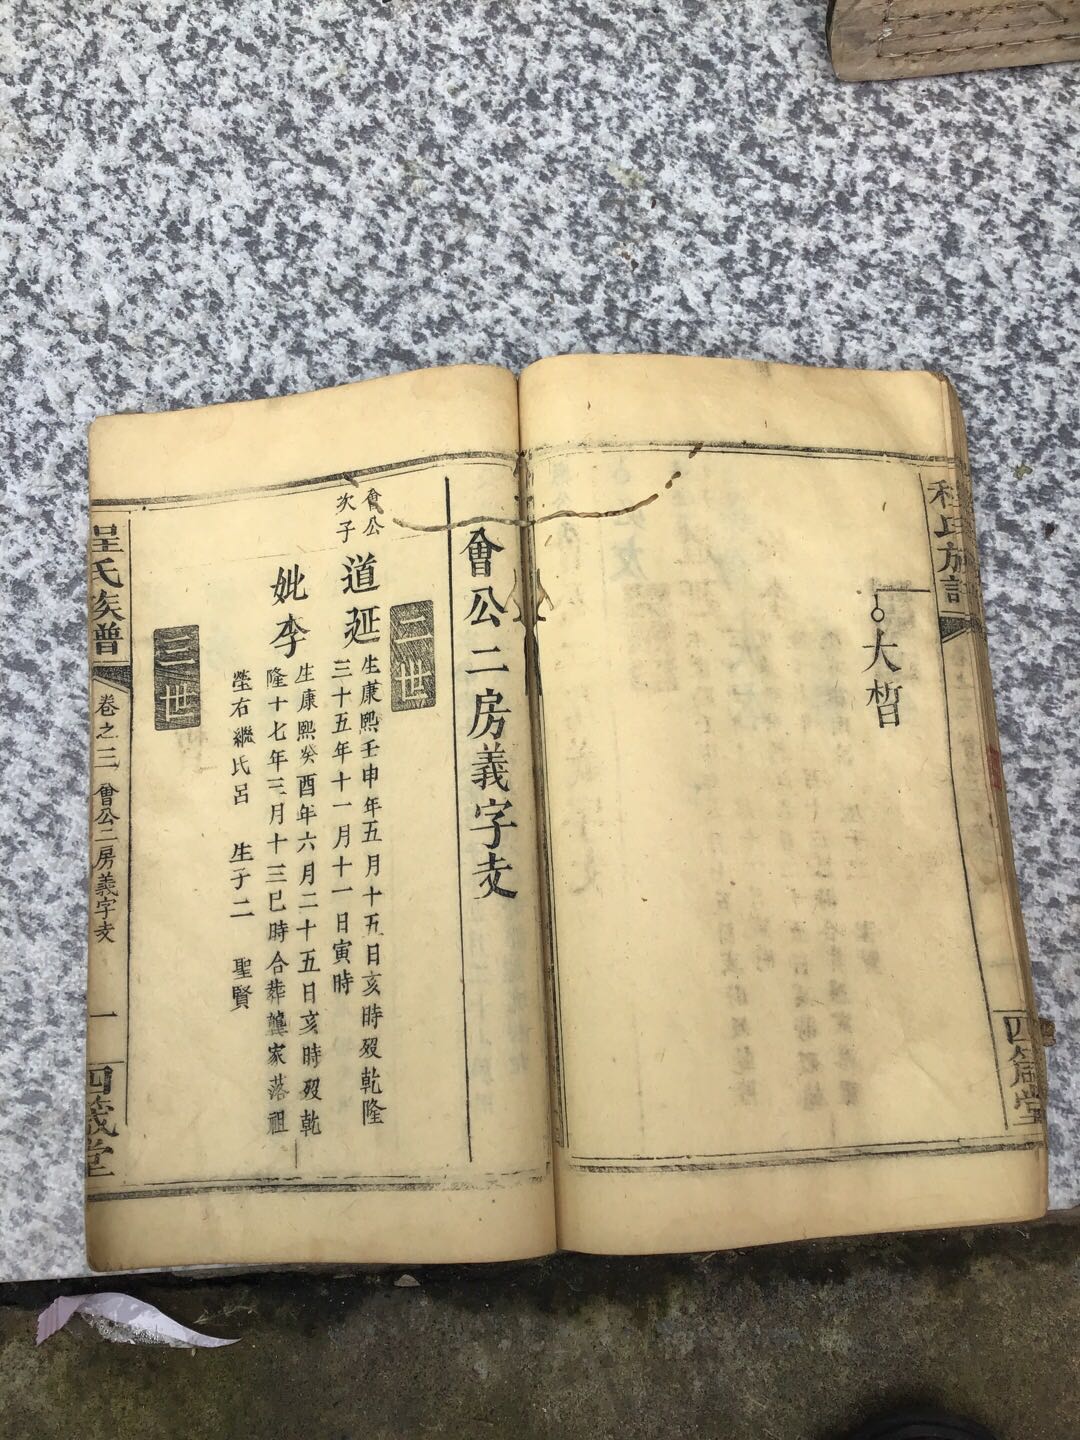 程氏族譜
大晳
四箴堂
會公二房義字支
二世
會公
次子
道延
生康熙壬申年五月十五日亥時歿乾隆
三十五年十一月十一日寅時
妣李
生康熙癸酉年六月二十五日亥時歿乾
隆十七年三月十三巳時合葬龔家落祖
塋右繼氏呂 生子二 聖賢
三世
程氏族譜
卷之三 會公二房義字支
一
四箴堂